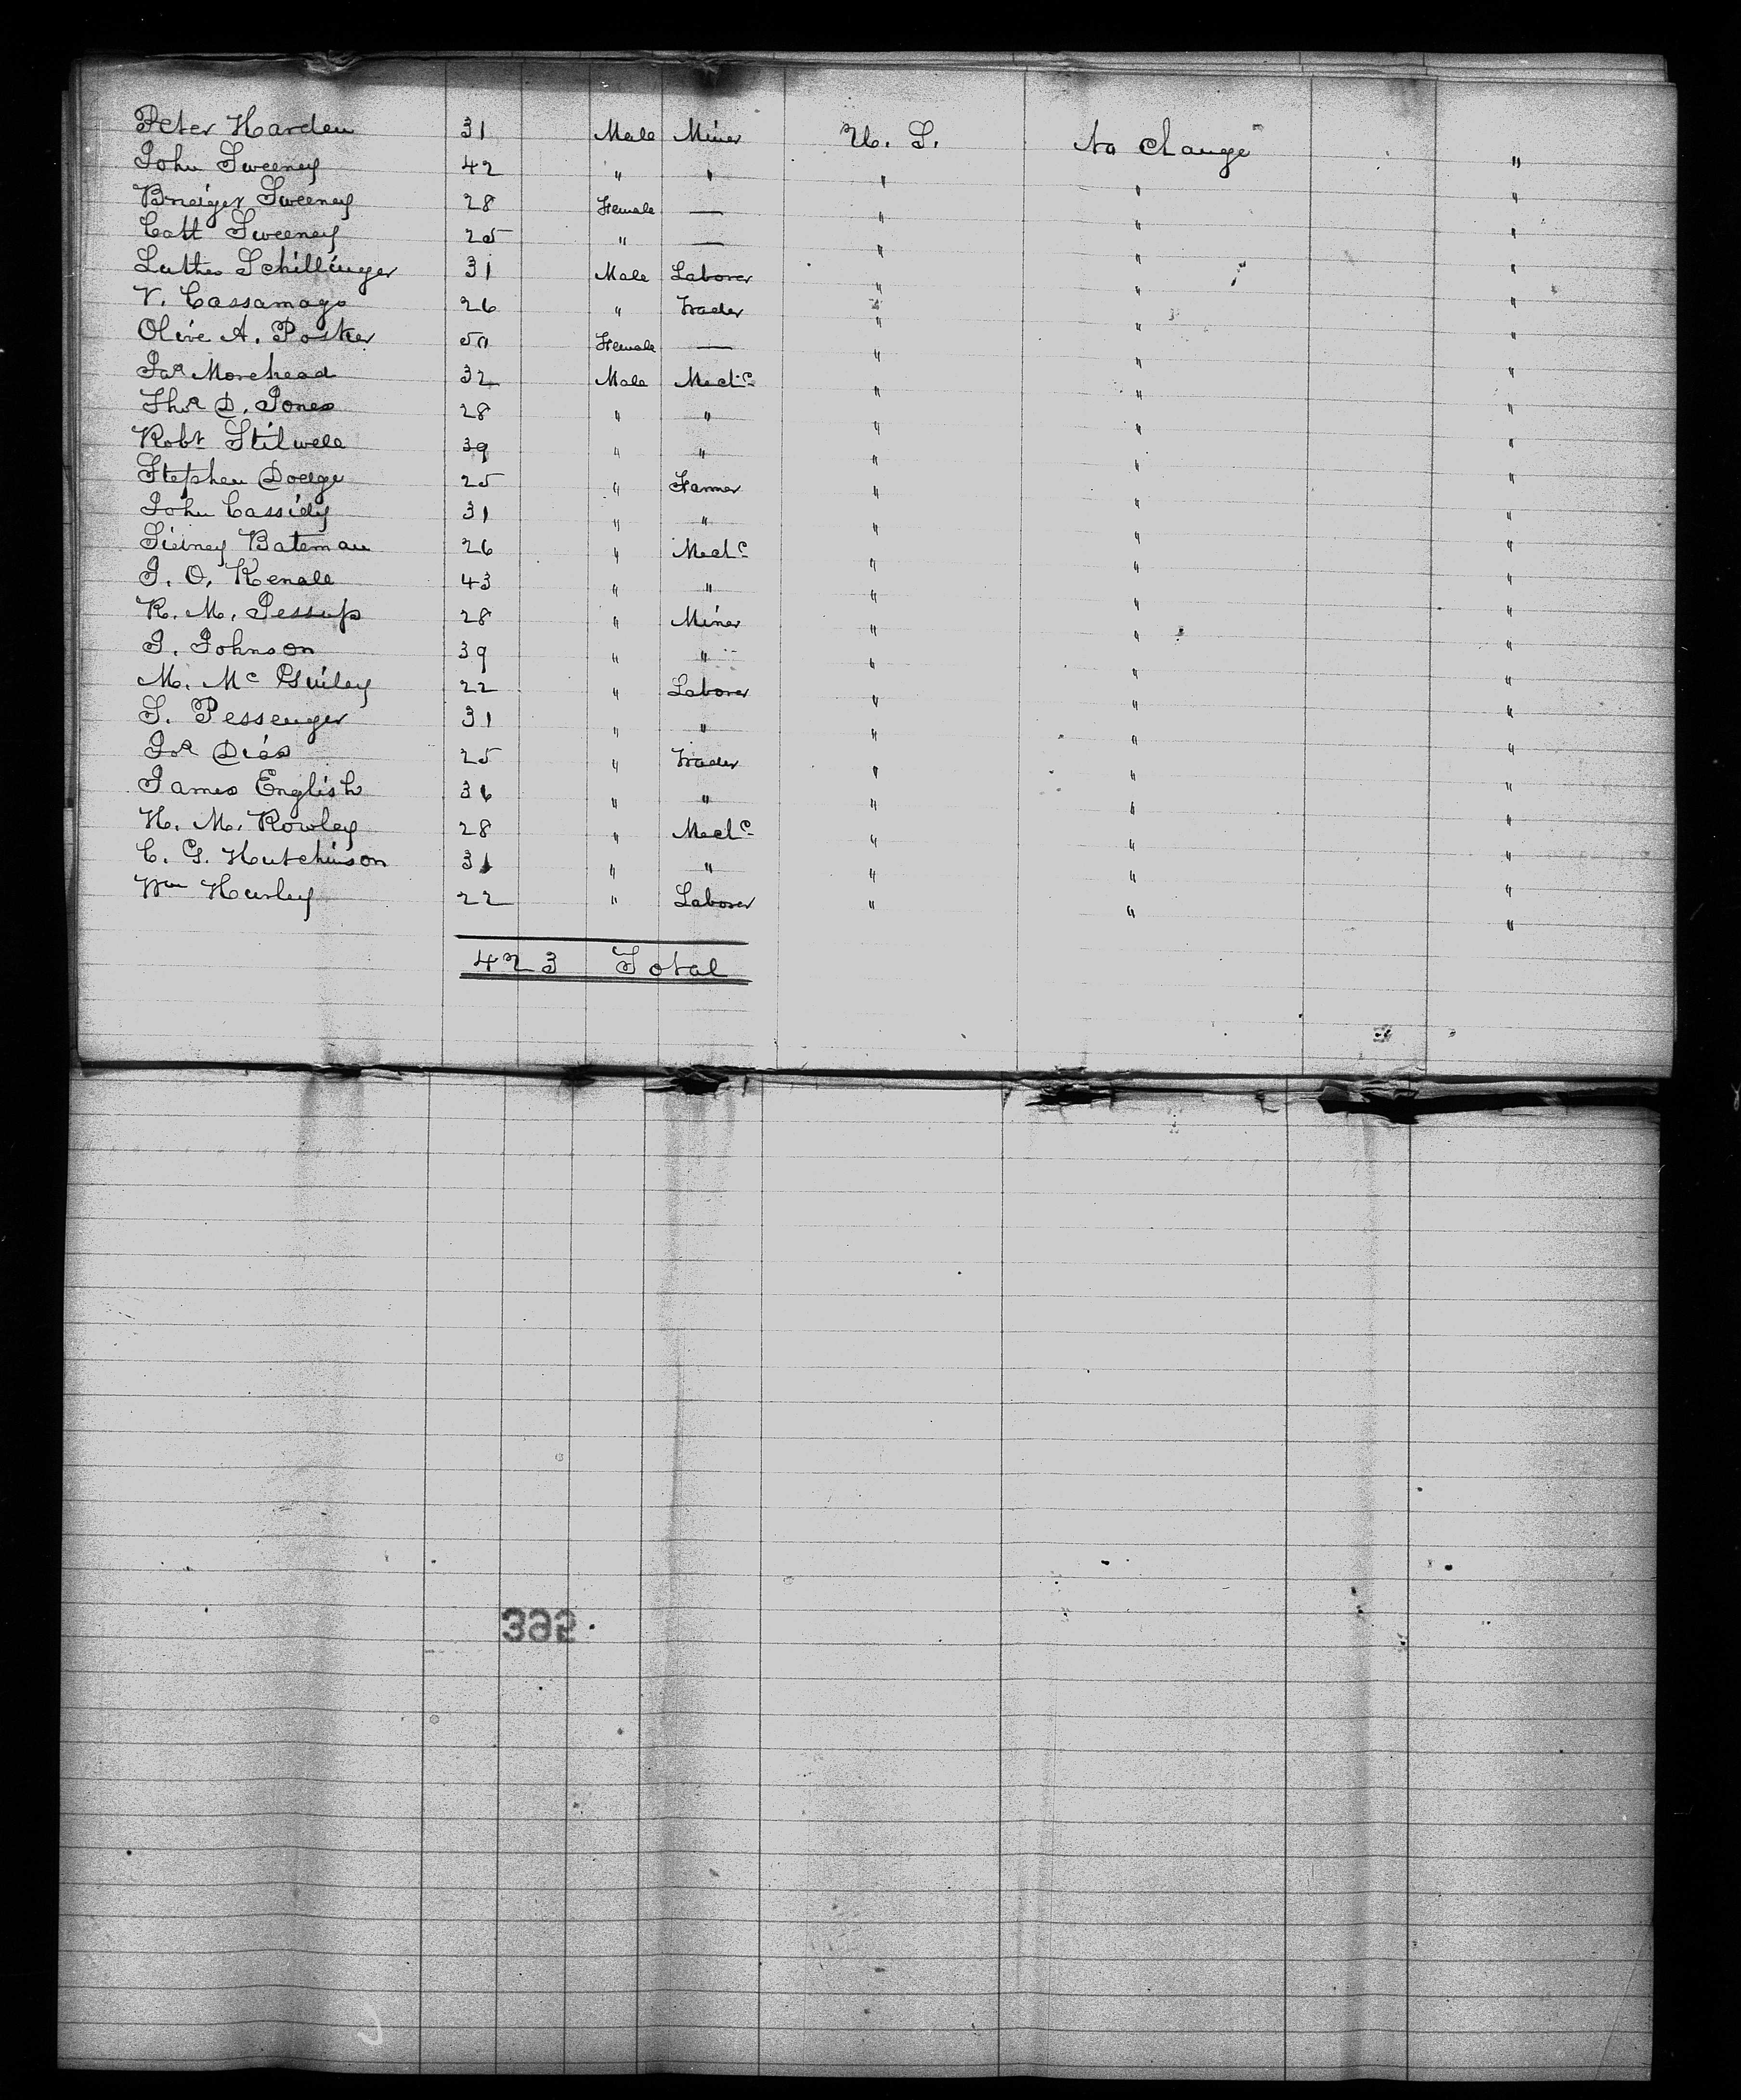 Peter Harden 31 Male Miner U. S. No Change "
John Sweeney 42 " " " " "
Breiger Sweeney 28 Female — " " "
Catt Sweeney 25 " — " " "
Luther Schillinger 31 Male Laborer " " "
V. Cassamago 26 " Trader " " "
Olive A. Posker 50 Female — " " "
Jas Morehead 32 Male Mechc " " "
Thos D. Jones 28 " " " " "
Robt Stilwell 39 " " " " "
Stephen Dodge 25 " Farmer " " "
John Cassidy 31 " " " " "
Sidney Bateman 26 " Mechc " " "
J. O. Kenall 43 " " " " "
R. M. Jessup 28 " Miner " " "
J. Johnson 39 " " " " "
M. Mc Guiley 22 " Laborer " " "
S. Pessenger 31 " " " " "
Jos Dias 25 " Trader " " "
James English 36 " " " " "
H. M. Rowley 28 " Mechc " " "
C. G. Hutchinson 31 " " " " "
Wm Hurley 22 " Laborer " " "
423 Total